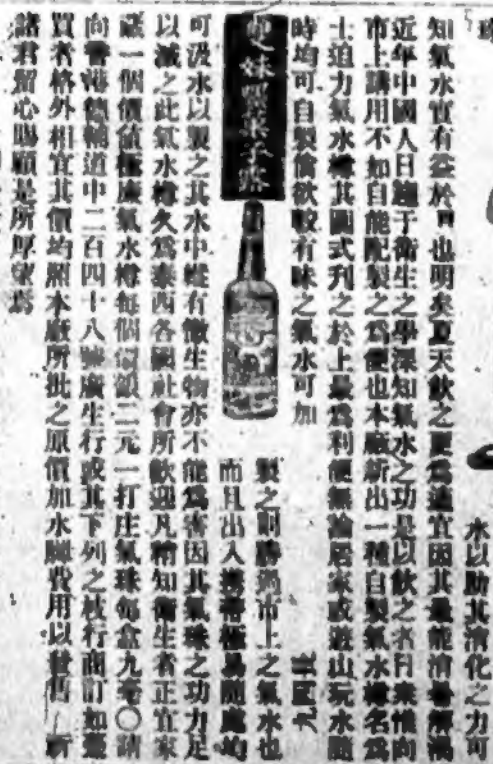 水以助其消化之力可
知氣水宜有益於胃也明矣夏天飲之更為適宜因其最能消暑解渴
近年中國人日趨于衛生之學深知氣水之功是以飲之者日衆惟向
市上購用不如自能配製之為便也本廠新出一種自製氣水樽名為
士迫力氣水樽其圖式刋之於上最為利便無論居家或遊山玩水隨
時均可自製倘欲較有味之氣水可加
雙妹嘜菓子露
製之則勝過市上之氣水也
而且出入攜帶極易隨處均
可汲水以製之其水中縱有微生物亦不能為害因其氣珠之功力足
以滅之此氣水樽久為泰西各國社會所歡迎凡稍知衛生者正宜家
一個價值極廉氣水樽每個價銀二元一打庄氣珠每盒九毫〇請
向香港德輔道中二百四十八號廣生行或其下列之枝行商訂如蒙
買者格外相宜其價均照本廠所批之原價加水腳費用以發售
諸君留心賜顧是所厚望焉